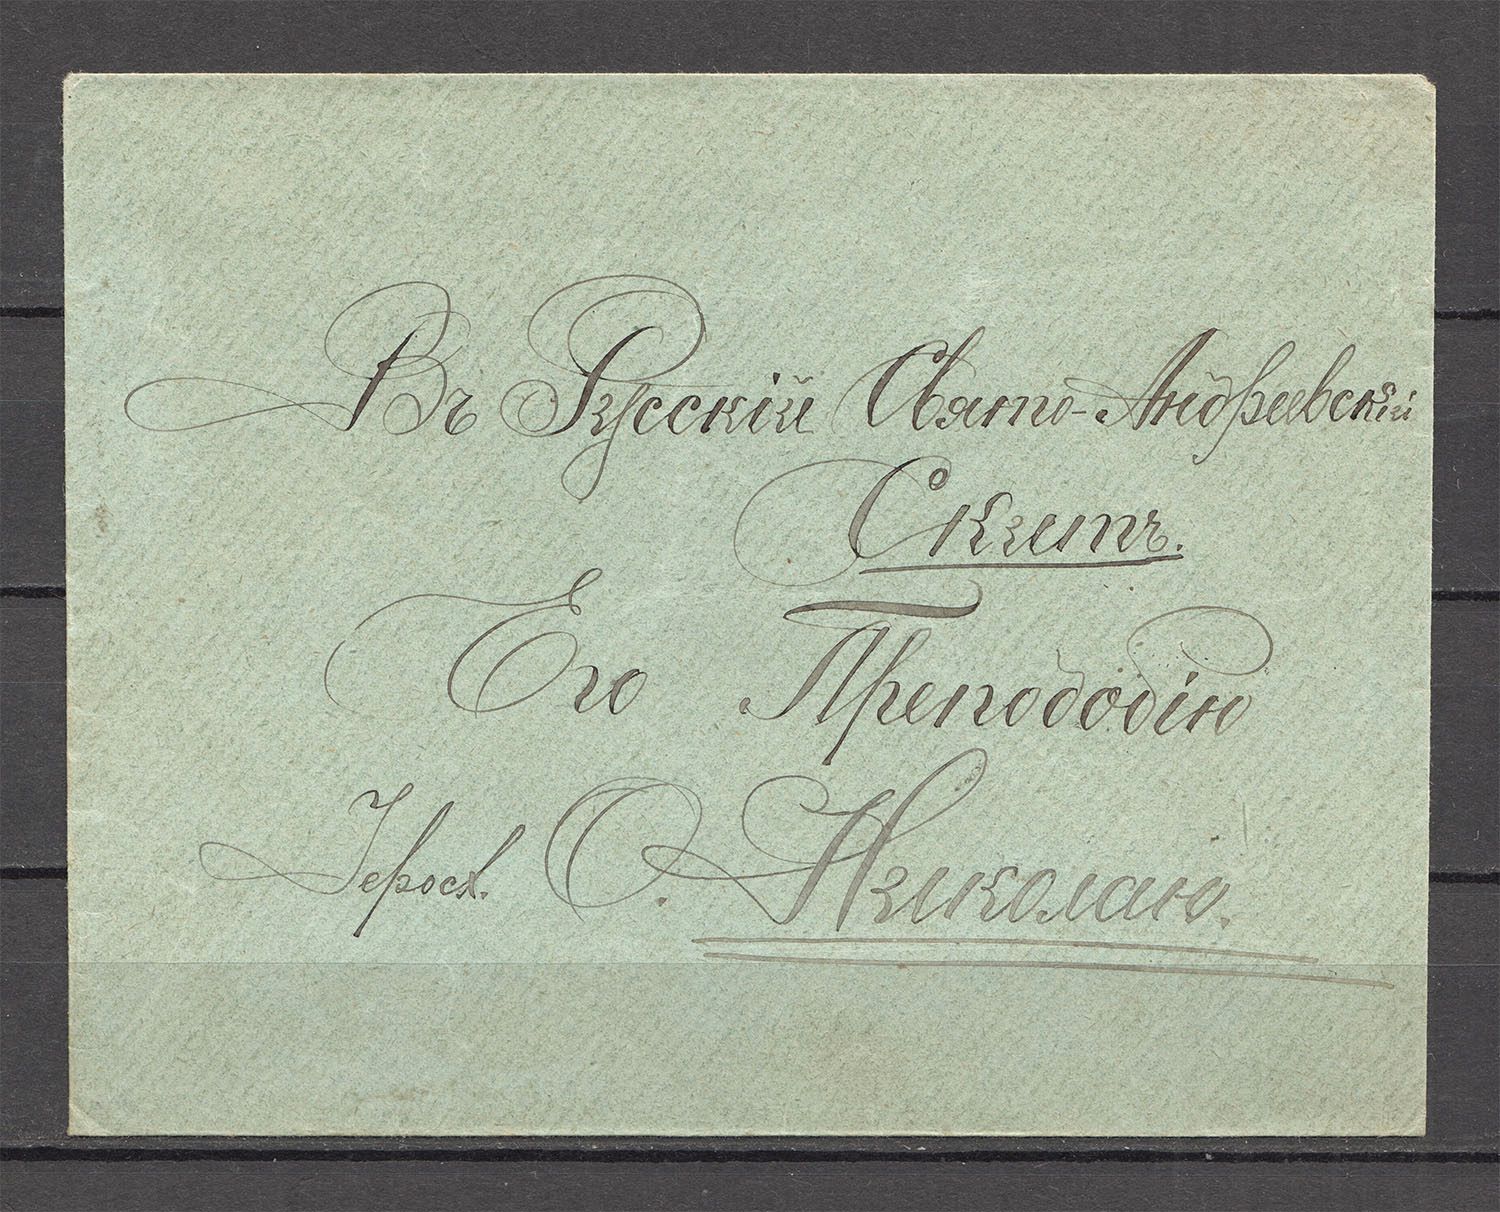 Въ Русскій Свято-Андреевскій
Скитъ.
Его Преподобію
Іеросх. О. Николаю.